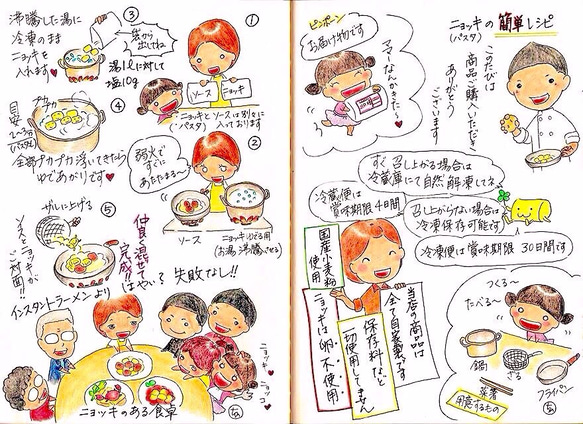 ニョッキの簡単レシピ
(パスタ)
このたびは
商品ご購入いただき
ありがとう
ございます
ピンポーン
お届け物です
ママーなんかきた〜♥
すぐ召し上がる場合は
冷蔵庫にて自然解凍してネ
召し上がらない場合は
冷凍保存可能です
冷蔵便は
賞味期限4日間
冷凍便は賞味期限30日間です
当店の商品は
全て自家製です
保存料など
一切使用してません
国産小麦粉
使用
ニョッキは卵不使用
つくる〜
たべる〜
鍋
ざる
フライパン
菜箸
用意するもの
①
袋から
出してネ
ソース
ニョッキ
ニョッキとソースは別々に
(パスタ)
入っております
②
弱火で
すぐに
あたたまる〜
ソース
ニョッキゆでる用
(お湯沸騰させる)
③
沸騰した湯に
冷凍のまま
ニョッキを
入れます♥
湯1Lに対して
塩10g
④
プカプカ
目安
2〜3分
全部プカプカ浮いてきたら
ゆであがりです♥
⑤
ザルに上げる
ソースとニョッキが
ご対面!!
仲良く混ぜて
完成
インスタントラーメンより
はやい?失敗なし!!
ニョッキ♥
ニョッコ♥
ニョッキのある食卓